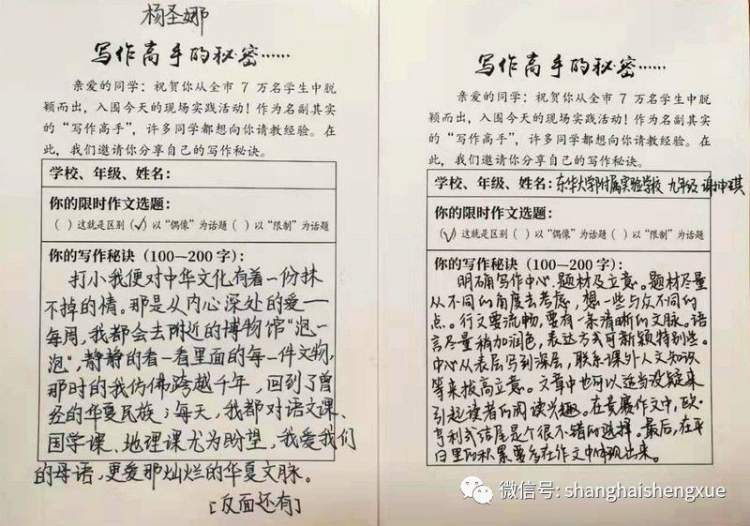 杨圣娜
写作高手的秘密……
亲爱的同学：祝贺你从全市 7 万名学生中脱
颖而出，入围今天的现场实践活动！作为名副其实
的“写作高手”，许多同学都想向你请教经验。在
此，我们邀请你分享自己的写作秘诀。
学校、年级、姓名：
你的限时作文选题：
（ ）这就是区别（✓）以“偶像”为话题（ ）以“限制”为话题
你的写作秘诀（100—200 字）：
打小我便对中华文化有着一份抹
不掉的情。那是从内心深处的爱——
每周，我都会去附近的博物馆“泡一
泡”，静静的看一看里面的每一件文物，
那时的我仿佛跨越千年，回到了曾
经的华夏民族；每天，我都对语文课、
国学课、地理课尤为盼望，我爱我们
的母语，更爱那灿烂的华夏文脉。
[反面还有]
写作高手的秘密……
亲爱的同学：祝贺你从全市 7 万名学生中脱
颖而出，入围今天的现场实践活动！作为名副其实
的“写作高手”，许多同学都想向你请教经验。在
此，我们邀请你分享自己的写作秘诀。
学校、年级、姓名：东华大学附属实验学校 九年级 谢坤琪
你的限时作文选题：
（✓）这就是区别（ ）以“偶像”为话题（ ）以“限制”为话题
你的写作秘诀（100—200 字）：
明确写作中心、题材及立意。题材尽量
从不同的角度去考虑，想一些与众不同的
点。行文要流畅，要有一条清晰的文脉。语
言尽量稍加润色，表达方式可新颖特别些。
中心从表层写到深层，联系课外人文知识
等来拔高立意。文章中也可以适当设疑来
引起读者的阅读兴趣。在竞赛作文中，欧·
亨利式结尾是个很不错的选择。最后，在平
日里的积累要多在作文中体现出来。
微信号: shanghaishengxue